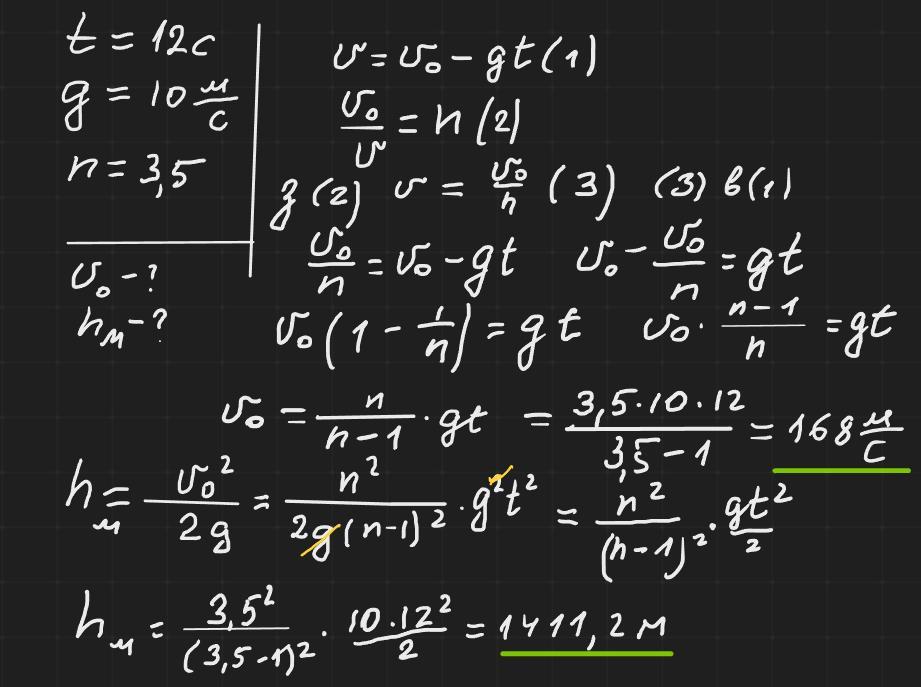 t = 12с
g = 10 м/с
n = 3,5
υ₀ - ?
hм - ?
υ = υ₀ - gt (1)
υ₀/υ = n (2)
з (2) υ = υ₀/n (3) (3) в (1)
υ₀/n = υ₀ - gt υ₀ - υ₀/n = gt
υ₀(1 - 1/n) = gt υ₀ · (n-1)/n = gt
υ₀ = n/(n-1) · gt = (3,5·10·12)/(3,5-1) = 168 м/с
hм = υ₀²/2g = n²/(2g(n-1)²) · g²t² = n²/(n-1)² · gt²/2
hм = 3,5²/(3,5-1)² · (10·12²)/2 = 1411,2 м